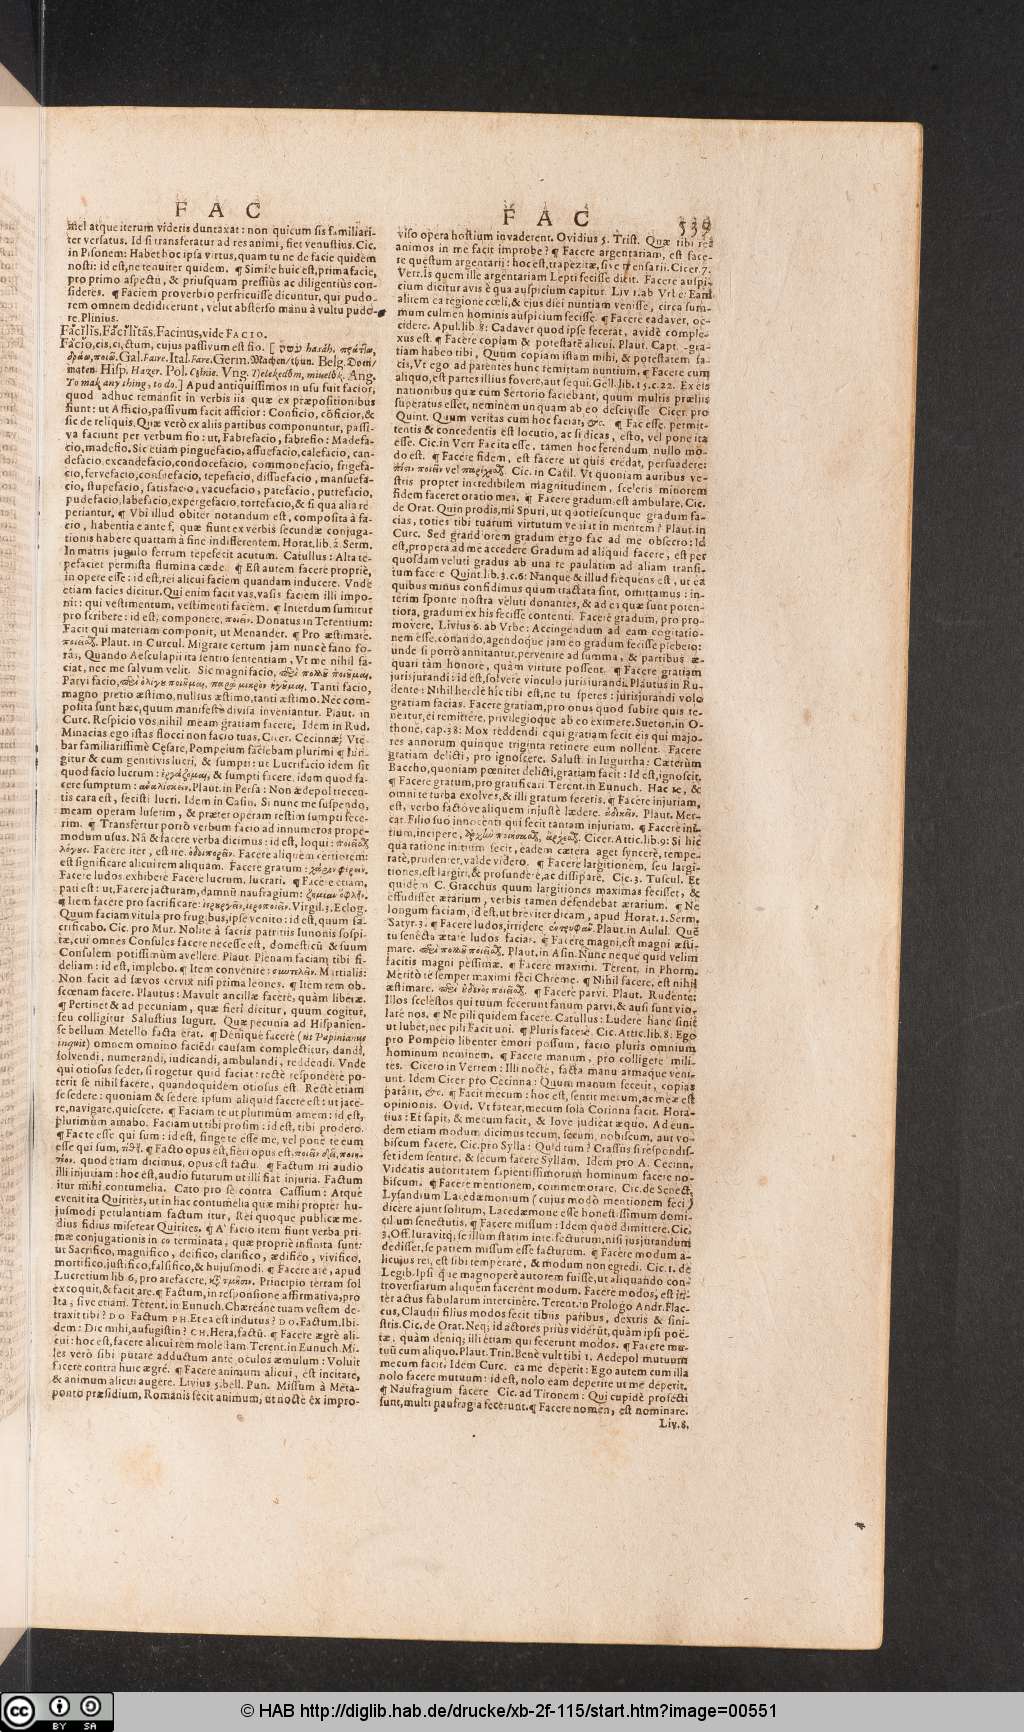 F A C
mel atque iterum videris duntaxat: non quicum sis familiari-
ter versatus. Id si transferatur ad res animi, fiet venustius. Cic.
in Pisonem: Habet hoc ipsa virtus, quam tu ne de facie quidem
nosti: id est, ne tenuiter quidem. ¶ Simile huic est, prima facie,
pro primo aspectu, & priusquam pressius ac diligentius con-
sideres. ¶ Faciem proverbio perfricuisse dicuntur, qui pudo-
rem omnem dedidicerunt, velut absterso manu à vultu pudo-
re. Plinius.
Facilis. Facilitas. Facinus, vide FACIO.
Facio, cis, ci, ctum, cujus passivum est fio.
Gal. Faire. Ital. Fare. Germ. Machen/thun. Belg. Doen/
maken. Hisp. Hazer. Pol. Ang.
To mak any thing, to do.] Apud antiquissimos in usu fuit facior,
quod adhuc remansit in verbis iis quæ ex præpositionibus
fiunt: ut Afficio, passivum facit afficior: Conficio, cõficior, &
sic de reliquis. Quæ verò ex aliis partibus componuntur, passi-
va faciunt per verbum fio: ut, Fabrefacio, fabrefio: Madefa-
cio, madefio. Sic etiam pinguefacio, assuefacio, calefacio, can-
defacio, excandefacio, condocefacio, commonefacio, frigefa-
cio, fervefacio, consuefacio, tepefacio, dissuefacio, mansuefa-
cio, stupefacio, satisfacio, vacuefacio, patefacio, putrefacio,
pudefacio, labefacio, expergefacio, torrefacio, & si qua alia re
periantur. ¶ Vbi illud obiter notandum est, composita à fa-
cio, habentia e ante f, quæ fiunt ex verbis secundæ conjuga-
tionis habere quartam à fine indifferentem. Horat. lib. 2. Serm.
In matris jugulo ferrum tepefecit acutum. Catullus: Alta te-
pefaciet permista flumina cæde. ¶ Est autem facere propriè,
in opere esse: id est, rei alicui faciem quandam inducere. Vnde
etiam facies dicitur. Qui enim facit vas, vasis faciem illi impo-
nit: qui vestimentum, vestimenti faciem. ¶ Interdum sumitur
pro scribere: id est, componere, ποιεῖν. Donatus in Terentium:
Facit qui materiam componit, ut Menander. ¶ Pro æstimare.
Plaut. in Curcul. Migrare certum jam nunc è fano fo-
ras, Quando Aesculapii ita sentio sententiam, Vt me nihil fa-
ciat, nec me salvum velit. Sic magni facio,
Parvi facio, Tanti facio,
magno pretio æstimo, nullius æstimo, tanti æstimo. Nec com-
posita sunt hæc, quum manifestè divisa inveniantur. Plaut. in
Curc. Respicio vos nihil meam gratiam facere. Idem in Rud.
Minacias ego istas flocci non facio tuas. Cicer. Cecinnæ: Vte-
bar familiarissimè Cæsare, Pompeium faciebam plurimi ¶ Jun-
gitur & cum genitivis lucri, & sumpti: ut Lucrifacio idem sit
quod facio lucrum: & sumpti facere, idem quod fa-
cere sumptum: Plaut. in Persa: Non ædepol trecen-
tis cara est, fecisti lucri. Idem in Casin. Si nunc me suspendo,
meam operam luserim, & præter operam restim sumpti fece-
rim. ¶ Transfertur porrò verbum facio ad innumeros prope-
modum usus. Nã & facere verba dicimus: id est, loqui:
Facere iter, est ire. Facere aliquem certiorem:
est significare alicui rem aliquam. Facere gratum:
Facere ludos, exhibere Facere lucrum, lucrari. ¶ Facere etiam,
pati est: ut, Facere jacturam, damnũ naufragium:
¶ Item facere pro sacrificare: Virgil. 3. Eclog.
Quum faciam vitula pro frugibus, ipse venito: id est, quum sa-
crificabo. Cic. pro Mur. Nolite à sacris patriis Iunonis sospi-
tæ, cui omnes Consules facere necesse est, domesticũ & suum
Consulem potissimùm avellere. Plaut. Plenam faciam tibi fi-
deliam: id est, implebo. ¶ Item convenite: Martialis:
Non facit ad sævos cervix nisi prima leones. ¶ Item rem ob-
scœnam facere. Plautus: Mavult ancillæ facere, quàm liberæ.
¶ Pertinet & ad pecuniam, quæ fieri dicitur, quum cogitur,
seu colligitur Salustius Iugurt. Quæ pecunia ad Hispanien-
se bellum Metello facta erat. ¶ Denique facere (ut Papinianus
inquit) omnem omnino faciẽdi causam complectitur, dandi,
solvendi, numerandi, iudicandi, ambulandi, reddendi. Vnde
qui otiosus sedet, si rogetur quid faciat: rectè respondere po-
terit se nihil facere, quandoquidem otiosus est. Rectè etiam
se sedere: quoniam & sedere ipsum aliquid facere est: ut jace-
re, navigare, quiescere. ¶ Faciam te ut plurimùm amem: id est,
plurimùm amabo. Faciam ut tibi prosim: id est, tibi prodero.
¶ Facte esse qui sum: id est, finge te esse me, vel pone te eum
esse qui sum, ¶ Facto opus est, fieri opus est.
quod etiam dicimus, opus est factu. ¶ Factum iri audio
illi injuriam: hoc est, audio futurum ut illi fiat injuria. Factum
itur mihi contumelia. Cato pro se contra Cassium: Atque
evenit ita Quirites, ut in hac contumelia quæ mihi propter hu-
jusmodi petulantiam factum itur, Rei quoque publicæ me-
dius fidius miserear Quirites. ¶ A facio item fiunt verba pri-
mæ conjugationis in co terminata, quæ propriè infinita sunt:
ut Sacrifico, magnifico, deifico, clarifico, ædifico, vivifico,
mortifico, justifico, falsifico, & hujusmodi. ¶ Facere are, apud
Lucretium lib. 6, pro arefacere, Principio terram sol
excoquit, & facit are. ¶ Factum, in responsione affirmativa, pro
Ita, sive etiam. Terent. in Eunuch. Chæreáne tuam vestem de-
traxit tibi? DO. Factum PH. Et ea est indutus? DO. Factum. Ibi-
dem: Dic mihi, aufugistin? CH. Hera, factũ. ¶ Facere ægrè ali-
cui: hoc est, facere alicui rem molestam. Terent. in Eunuch. Mi-
les verò sibi putare adductum ante oculos æmulum: Voluit
facere contra huic ægrè. ¶ Facere animum alicui, est incitare,
& animum alicui augere. Livius 5. bell. Pun. Missum à Meta-
ponto præsidium, Romanis fecit animum, ut nocte ex impro-
F A C
539
viso opera hostium invaderent. Ovidius 5. Trist. Quæ tibi res
animos in me facit improbe? ¶ Facere argentariam, est face-
re quæstum argentarii: hoc est, trapezitæ, sive mensarii. Cicer. 7.
Verr. Is quem ille argentariam Lepti fecisse dicit. Facere auspi-
cium dicitur avis è qua auspicium capitur. Liv 1. ab Vrbe: Eam
alitem ea regione cœli, & ejus diei nuntiam venisse, circa sum-
mum culmen hominis auspicium fecisse. ¶ Facere cadaver, oc-
cidere. Apul. lib. 8: Cadaver quod ipse fecerat, avidè comple-
xus est. ¶ Facere copiam & potestatẽ alicui. Plaut. Capt. gra-
tiam habeo tibi, Quum copiam istam mihi, & potestatem fa-
cis, Vt ego ad parentes hunc remittam nuntium. ¶ Facere cum
aliquo, est partes illius fovere, aut sequi. Gell. lib. 15. c. 22. Ex eis
nationibus quæ cum Sertorio faciebant, quum multis præliis
superatus esset, neminem unquam ab eo descivisse Cicer. pro
Quint. Quum veritas cum hoc faciat, &c. ¶ Fac esse, permit-
tentis & concedentis est locutio, ac si dicas, esto, vel pone ita
esse. Cic. in Verr Fac ita esse, tamen hoc ferendum nullo mo-
do est. ¶ Facere fidem, est facere ut quis credat, persuadere:
vel Cic. in Catil. Vt quoniam auribus ve-
stris propter incredibilem magnitudinem, sceleris minorem
fidem faceret oratio mea. ¶ Facere gradum, est ambulare. Cic.
de Orat. Quin prodis, mi Spuri, ut quotiescunque gradum fa-
cias, toties tibi tuarum virtutum veniat in mentem? Plaut. in
Curc. Sed grandiorem gradum ergo fac ad me obsecro: Id
est, propera ad me accedere Gradum ad aliquid facere, est per
quosdam veluti gradus ab una re paulatim ad aliam transi-
tum facere Quint. lib. 3. c. 6: Nanque & illud frequens est, ut ea
quibus minus confidimus quum tractata sint, omittamus: in-
terim sponte nostra veluti donantes, & ad ea quæ sunt poten-
tiora, gradum ex his fecisse contenti. Facere gradum, pro pro-
movere. Livius 6. ab Vrbe: Accingendum ad eam cogitatio-
nem esse. conando, agendoque jam eo gradum fecisse plebeio:
unde si porrò annitantur, pervenire ad summa, & partibus æ-
quari tàm honore, quàm virtute possent. ¶ Facere gratiam
jurisjurandi: id est, solvere vinculo jurisjurandi. Plautus in Ru-
dente: Nihil herclè hic tibi est, ne tu speres: jurisjurandi volo
gratiam facias. Facere gratiam, pro onus quod subire quis te-
neatur, ei remittere, privilegioque ab eo eximere. Sueton. in O-
thone, cap. 38: Mox reddendi equi gratiam fecit eis qui majo-
res annorum quinque triginta retinere eum nollent. Facere
gratiam delicti, pro ignoscere. Salust. in Iugurtha: Cæterùm
Baccho, quoniam pœnitet delicti, gratiam facit: Id est, ignoscit.
¶ Facere gratum, pro gratificari Terent. in Eunuch. Hac re, &
omni te turba exolves, & illi gratum feceris. ¶ Facere injuriam,
est, verbo factóve aliquem injustè lædere. Plaut. Mer-
cat. Filio suo innocenti qui fecit tantam injuriam. ¶ Facere ini-
tium, incipere, Cicer. Attic. lib. 9: Si hic
qua ratione initium fecit, eadem cætera aget syncerè, tempe-
ratè, prudenter, valde videro. ¶ Facere largitionem, seu largi-
tiones, est largiri, & profundere, ac dissipare. Cic. 3. Tuscul. Et
quidem C. Gracchus quum largitiones maximas fecisset, &
effudisset ærarium, verbis tamen defendebat ærarium. ¶ Ne
longum faciam, id est, ut breviter dicam, apud Horat. 1. Serm.
Satyr. 3. ¶ Facere ludos, irridere Plaut. in Aulul. Quẽ
tu senecta ætate ludos facias. ¶ Facere magni, est magni æsti-
mare. Plaut. in Asin. Nunc neque quid velim
facitis magni pessimæ. ¶ Facere maximi. Terent. in Phorm.
Merito te semper maximi feci Chreme. ¶ Nihil facere, est nihil
æstimare. ¶ Facere parvi. Plaut. Rudente:
Illos scelestos qui tuum fecerunt fanum parvi, & ausi sunt vio-
lare nos. ¶ Ne pili quidem facere. Catullus: Ludere hanc sinit
ut lubet, nec pili Facit uni. ¶ Pluris facere. Cic. Attic. lib. 8. Ego
pro Pompeio libenter emori possum, facio pluris omnium
hominum neminem. ¶ Facere manum, pro colligere mili-
tes. Cicero in Verrem: Illi nocte, facta manu armaque veni-
unt. Idem Cicer pro Cecinna: Quum manum fecerit, copias
pararit, &c. ¶ Facit mecum: hoc est, sentit mecum, ac meæ est
opinionis. Ovid. Vt fatear, mecum sola Corinna facit. Hora-
tius: Et sapit, & mecum facit, & Iove judicat æquo. Ad eun-
dem etiam modum dicimus tecum, secum, nobiscum, aut vo-
biscum facere. Cic. pro Sylla: Quid tum? Crassus si respondis-
set idem sentire, & secum facere Syllam. Idem pro A. Cecinn.
Videatis autoritatem sapientissimorum hominum facere no-
biscum. ¶ Facere mentionem, commemorare. Cic. de Senect.
Lysandium Lacedæmonium (cujus modò mentionem feci)
dicere ajunt solitum, Lacedæmone esse honestissimum domi-
cilium senectutis. ¶ Facere missum: Idem quod dimittere. Cic.
3. Off. Iuravitq; se illum statim interfecturum, nisi jusjurandum
dedisset, se patrem missum esse facturum. ¶ Facere modum a-
licujus rei, est sibi temperare, & modum non egredi. Cic. 1. de
Legib. Ipsi q̃ se magnoperè autorem fuisse, ut aliquando con-
troversiarum aliquem facerent modum. Facere modos, est in-
ter actus fabularum intercinere. Terent. in Prologo Andr. Flac-
cus, Claudii filius modos fecit tibiis paribus, dextris & sini-
stris. Cic. de Orat. Neq; id actores priùs viderũt, quàm ipsi poë-
tæ, quàm deniq; illi etiam qui fecerunt modos. ¶ Facere mu-
tuũ cum aliquo. Plaut. Trin. Benè vult tibi 1. Aedepol mutuum
mecum facit. Idem Curc. ea me deperit: Ego autem cum illa
nolo facere mutuum: id est, nolo eam deperire ut me deperit.
¶ Naufragium facere Cic. ad Tironem: Qui cupidè profecti
sunt, multi naufragia fecerunt. ¶ Facere nomen, est nominare.
Liv. 8.
© HAB http://diglib.hab.de/drucke/xb-2f-115/start.htm?image=00551
cc
BY SA